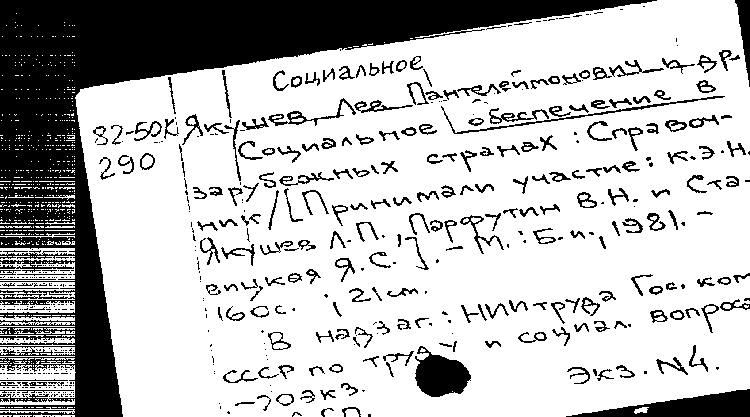 Социальное
82-50К Якушев, Лев Пантелеймонович и др.
290 Социальное обеспечение в
зарубежных странах : Справоч-
ник / [Принимали участие: к.э.н.
Якушев Л.П., Парфутин В.Н. и Ста-
вицкая Я.С.]. - М. : Б.и., 1981. -
160с. ; 21см.
В надзаг.: НИИ труда Гос. ком
СССР по труду и социал. вопроса
. -70экз.
Экз. N4.